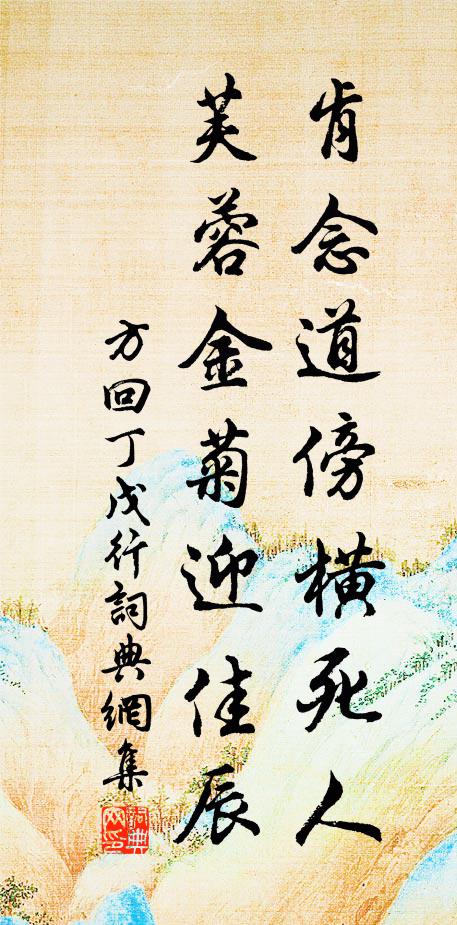 肯念道傍橫死人
芙蓉金菊迎佳辰
方回丁戊行詞典網集
詞典网印